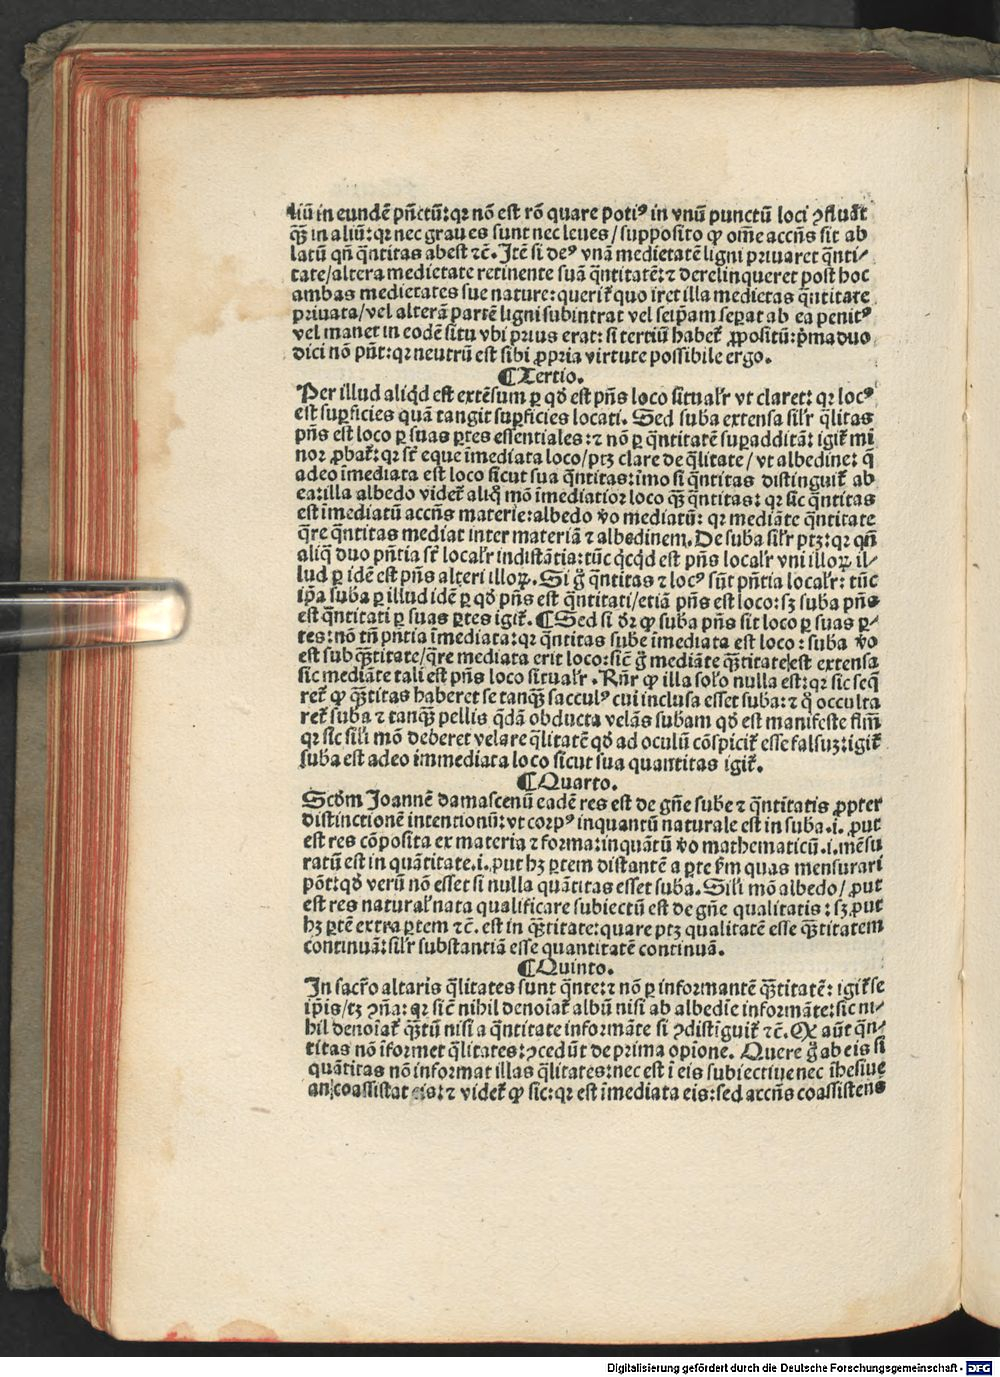 liū in eundē pn̄ctū: qꝛ nō est rō quare potiꝰ in vnū punctū loci ꝯfluāt
qꝫ̄ in aliū: qꝛ nec graues sunt nec leues / supposito ꝙ om̄e accn̄s sit ab
latū qn̄ q̄ntitas abest ⁊c̄. Itē si deꝰ vnā medietatē ligni priuaret q̄nti⸗
tate / altera medietate retinente suā q̄ntitatē: ⁊ derelinqueret post hoc
ambas medietates sue nature: querit̄ quo iret illa medietas q̄ntitate
priuata / vel alterā partē ligni subintrat vel seip̄am seꝑat ab ea penitꝰ
vel manet in eodē situ vbi prius erat: si tertiū habet̄ ꝓpositū: p̄ma duo
dici nō pn̄t: qꝛ neutrū est sibi ꝓpria virtute possibile ergo.
¶Tertio.
Per illud aliq̄d est extēsum ꝑ qd̄ est pn̄s loco situalr̄ vt claret: qꝛ locꝰ
est suꝑficies quā tangit suꝑficies locati. Sed suba extensa silr̄ q̄litas
pn̄s est loco ꝑ suas ꝑtes essentiales: ⁊ nō ꝑ q̄ntitatē suꝑadditā: igit̄ mi
noꝛ ꝓbat̄: qꝛ st̄ eque īmediata loco / ptꝫ clare de q̄litate / vt albedine: q̄
adeo īmediata est loco sicut sua q̄ntitas: īmo si q̄ntitas distinguit̄ ab
ea: illa albedo videt̄ aliq̄ mō īmediatioꝛ loco qꝫ̄ q̄ntitas: qꝛ sic q̄ntitas
est īmediatū accn̄s materie: albedo v̄o mediatū: qꝛ mediāte q̄ntitate
q̄re q̄ntitas mediat inter materiā ⁊ albedinem. De suba silr̄ ptꝫ: qꝛ qn̄
aliq̄ duo pn̄tia st̄ localr̄ indistātia: tūc q̄cq̄d est pn̄s localr̄ vni illoꝝ il⸗
lud ꝑ idē est pn̄s alteri illoꝝ. Si g̊ q̄ntitas ⁊ locꝰ sūt pn̄tia localr̄: tūc
ip̄a suba ꝑ illud idē ꝑ qd̄ pn̄s est q̄ntitati / etiā pn̄s est loco: sꝫ suba pn̄s
est q̄ntitati ꝑ suas ꝑtes igit̄. ¶Sed si dr̄ ꝙ suba pn̄s sit loco ꝑ suas ꝑ⸗
tes: nō tn̄ pn̄tia īmediata: qꝛ q̄ntitas sube īmediata est loco: suba v̄o
est sub qꝫ̄titate / q̄re mediata erit loco: sic̄ g̊ mediāte qꝫ̄titate est extensa
sic mediāte tali est pn̄s loco situalr̄. Rn̄r ꝙ illa solo nulla est: qꝛ sic seq̄
ret̄ ꝙ qꝫ̄titas haberet se tanqꝫ̄ sacculꝰ cui inclusa esset suba: ⁊ q̄ occulta
ret̄ suba ⁊ tanqꝫ̄ pellis q̄dā obducta velās subam qd̄ est manifeste flm̄
qꝛ sic sili mō deberet velare q̄litatē qd̄ ad oculū cōspicit̄ esse falsuꝫ: igit̄
suba est adeo immediata loco sicut sua quantitas igit̄.
¶Quarto.
Scd̄m Joannē damascenū eadē res est de gn̄e sube ⁊ q̄ntitatis ꝓpter
distinctionē intentionū: vt corpꝰ inquantū naturale est in suba .i. ꝓut
est res cōposita ex materia ⁊ forma: inquātū v̄o mathematicū .i. mēsu
ratū est in quātitate .i. ꝓut hꝫ ꝑtem distantē a ꝑte s̄m quas mensurari
pōt: qd̄ verū nō esset si nulla quātitas esset suba. Sili mō albedo / ꝓut
est res natural̄ nata qualificare subiectū est de gn̄e qualitatis: sꝫ ꝓut
hꝫ ꝑtē extra ꝑtem ⁊c̄. est in qꝫ̄titate: quare ptꝫ qualitatē esse qꝫ̄titatem
continuā: silr̄ substantiā esse quantitatē continuā.
¶Quinto.
In sacr̄o altaris q̄litates sunt q̄nte: ⁊ nō ꝑ informantē qꝫ̄titatē: igit̄ se
ip̄is / tꝫ ꝯn̄a: qꝛ sic̄ nihil denoīat̄ albū nisi ab albedīe informāte: sic ni⸗
hil denoīat̄ qꝫ̄tū nisi a q̄ntitate informāte si ꝯdistīguit̄ ⁊c̄. Ex aūt q̄n⸗
titas nō īformet q̄litates: ꝯcedūt de prima opīone. Quere g̊ ab eis si
quātitas nō informat illas q̄litates: nec est ī eis subiectiue nec īhesiue
an coassistat eis: ⁊ videt̄ ꝙ sic: qꝛ est īmediata eis: sed accn̄s coassistens
Digitalisierung gefördert durch die Deutsche Forschungsgemeinschaft - DFG